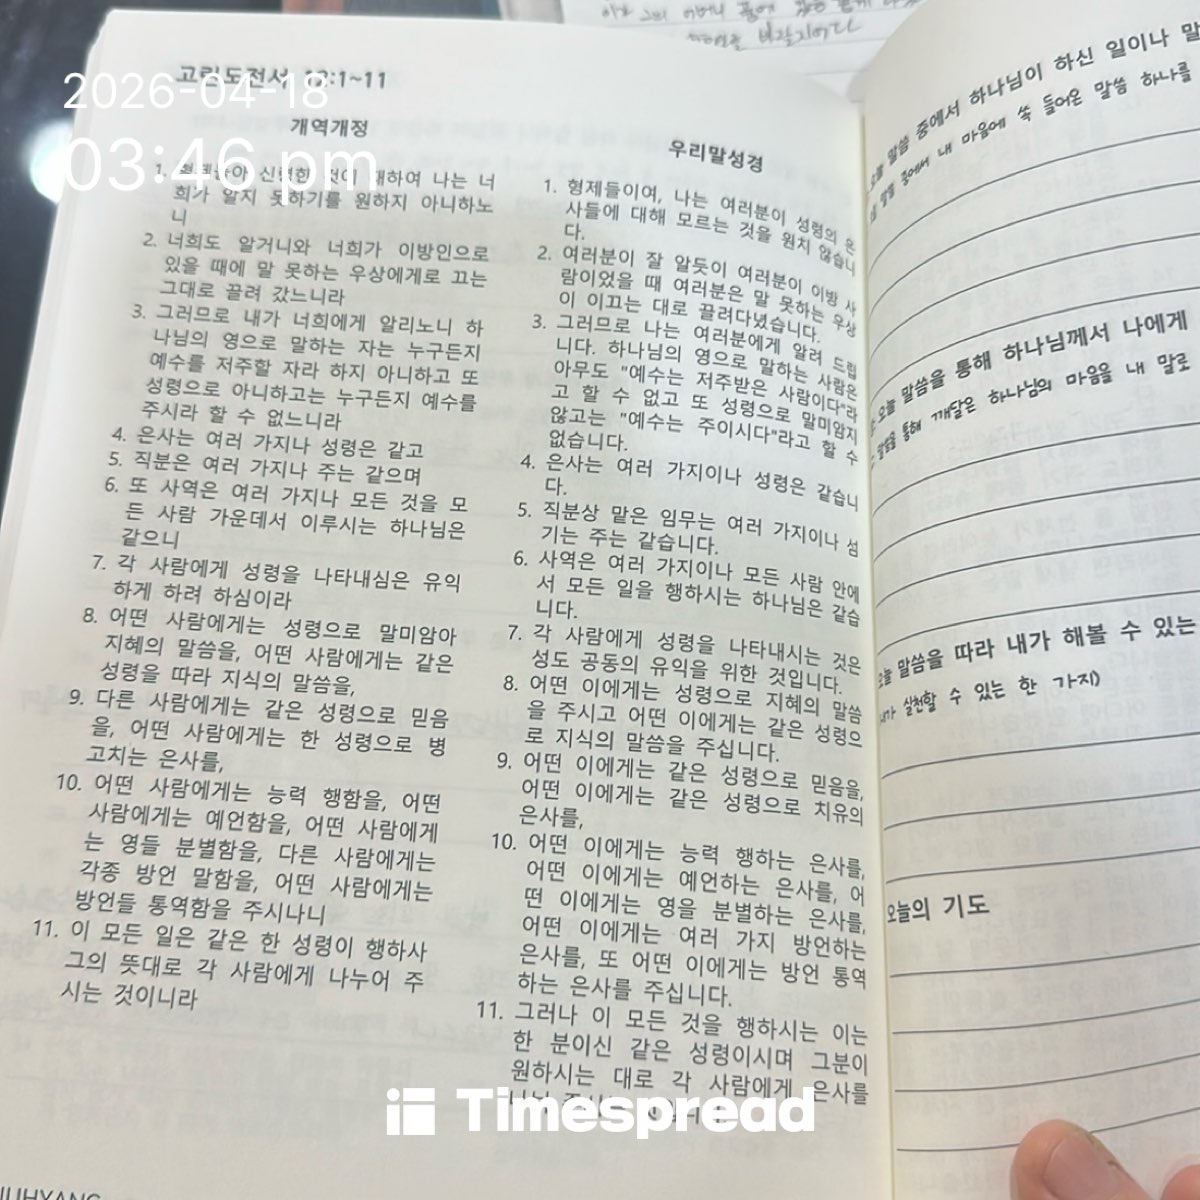 2026-04-18
03:46 pm
고린도전서 12:1~11
개역개정
1. 형제들아 신령한 것에 대하여 나는 너
희가 알지 못하기를 원하지 아니하노
니
2. 너희도 알거니와 너희가 이방인으로
있을 때에 말 못하는 우상에게로 끄는
그대로 끌려 갔느니라
3. 그러므로 내가 너희에게 알리노니 하
나님의 영으로 말하는 자는 누구든지
예수를 저주할 자라 하지 아니하고 또
성령으로 아니하고는 누구든지 예수를
주시라 할 수 없느니라
4. 은사는 여러 가지나 성령은 같고
5. 직분은 여러 가지나 주는 같으며
6. 또 사역은 여러 가지나 모든 것을 모
든 사람 가운데서 이루시는 하나님은
같으니
7. 각 사람에게 성령을 나타내심은 유익
하게 하려 하심이라
8. 어떤 사람에게는 성령으로 말미암아
지혜의 말씀을, 어떤 사람에게는 같은
성령을 따라 지식의 말씀을,
9. 다른 사람에게는 같은 성령으로 믿음
을, 어떤 사람에게는 한 성령으로 병
고치는 은사를,
10. 어떤 사람에게는 능력 행함을, 어떤
사람에게는 예언함을, 어떤 사람에게
는 영들 분별함을, 다른 사람에게는
각종 방언 말함을, 어떤 사람에게는
방언들 통역함을 주시나니
11. 이 모든 일은 같은 한 성령이 행하사
그의 뜻대로 각 사람에게 나누어 주
시는 것이니라
우리말성경
1. 형제들이여, 나는 여러분이 성령의 은
사들에 대해 모르는 것을 원치 않습니
다.
2. 여러분이 잘 알듯이 여러분이 이방 사
람이었을 때 여러분은 말 못하는 우상
이 이끄는 대로 끌려다녔습니다.
3. 그러므로 나는 여러분에게 알려 드립
니다. 하나님의 영으로 말하는 사람은
아무도 "예수는 저주받은 사람이다"라
고 할 수 없고 또 성령으로 말미암지
않고는 "예수는 주이시다"라고 할 수
없습니다.
4. 은사는 여러 가지이나 성령은 같습니
다.
5. 직분상 맡은 임무는 여러 가지이나 섬
기는 주는 같습니다.
6. 사역은 여러 가지이나 모든 사람 안에
서 모든 일을 행하시는 하나님은 같습
니다.
7. 각 사람에게 성령을 나타내시는 것은
성도 공동의 유익을 위한 것입니다.
8. 어떤 이에게는 성령으로 지혜의 말씀
을 주시고 어떤 이에게는 같은 성령으
로 지식의 말씀을 주십니다.
9. 어떤 이에게는 같은 성령으로 믿음을,
어떤 이에게는 같은 성령으로 치유의
은사를,
10. 어떤 이에게는 능력 행하는 은사를,
어떤 이에게는 예언하는 은사를, 어
떤 이에게는 영을 분별하는 은사를,
어떤 이에게는 여러 가지 방언하는
은사를, 또 어떤 이에게는 방언 통역
하는 은사를 주십니다.
11. 그러나 이 모든 것을 행하시는 이는
한 분이신 같은 성령이시며 그분이
원하시는 대로 각 사람에게 은사를
오늘 말씀 중에서 하나님이 하신 일이나 말
말씀 중에서 내 마음에 쏙 들어온 말씀 하나를
오늘 말씀을 통해 하나님께서 나에게
말씀을 통해 깨달은 하나님의 마음을 내 말로
오늘 말씀을 따라 내가 해볼 수 있는
내가 실천할 수 있는 한 가지)
오늘의 기도
Timespread